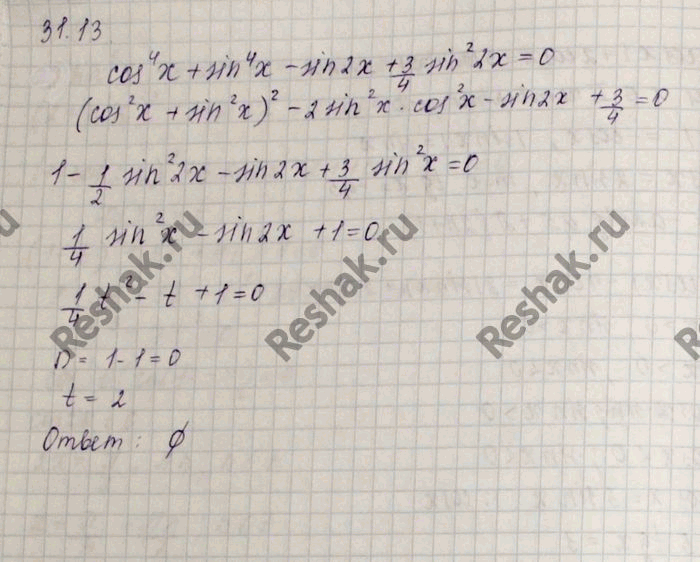 31.13
cos⁴x + sin⁴x - sin2x + 3/4 sin²2x = 0
(cos²x + sin²x)² - 2 sin²x · cos²x - sin2x + 3/4 = 0
1 - 1/2 sin²2x - sin2x + 3/4 sin²x = 0
1/4 sin²x - sin2x + 1 = 0
1/4 t² - t + 1 = 0
D = 1 - 1 = 0
t = 2
Ответ: ∅
Reshak.ru
Reshak.ru
Reshak.ru